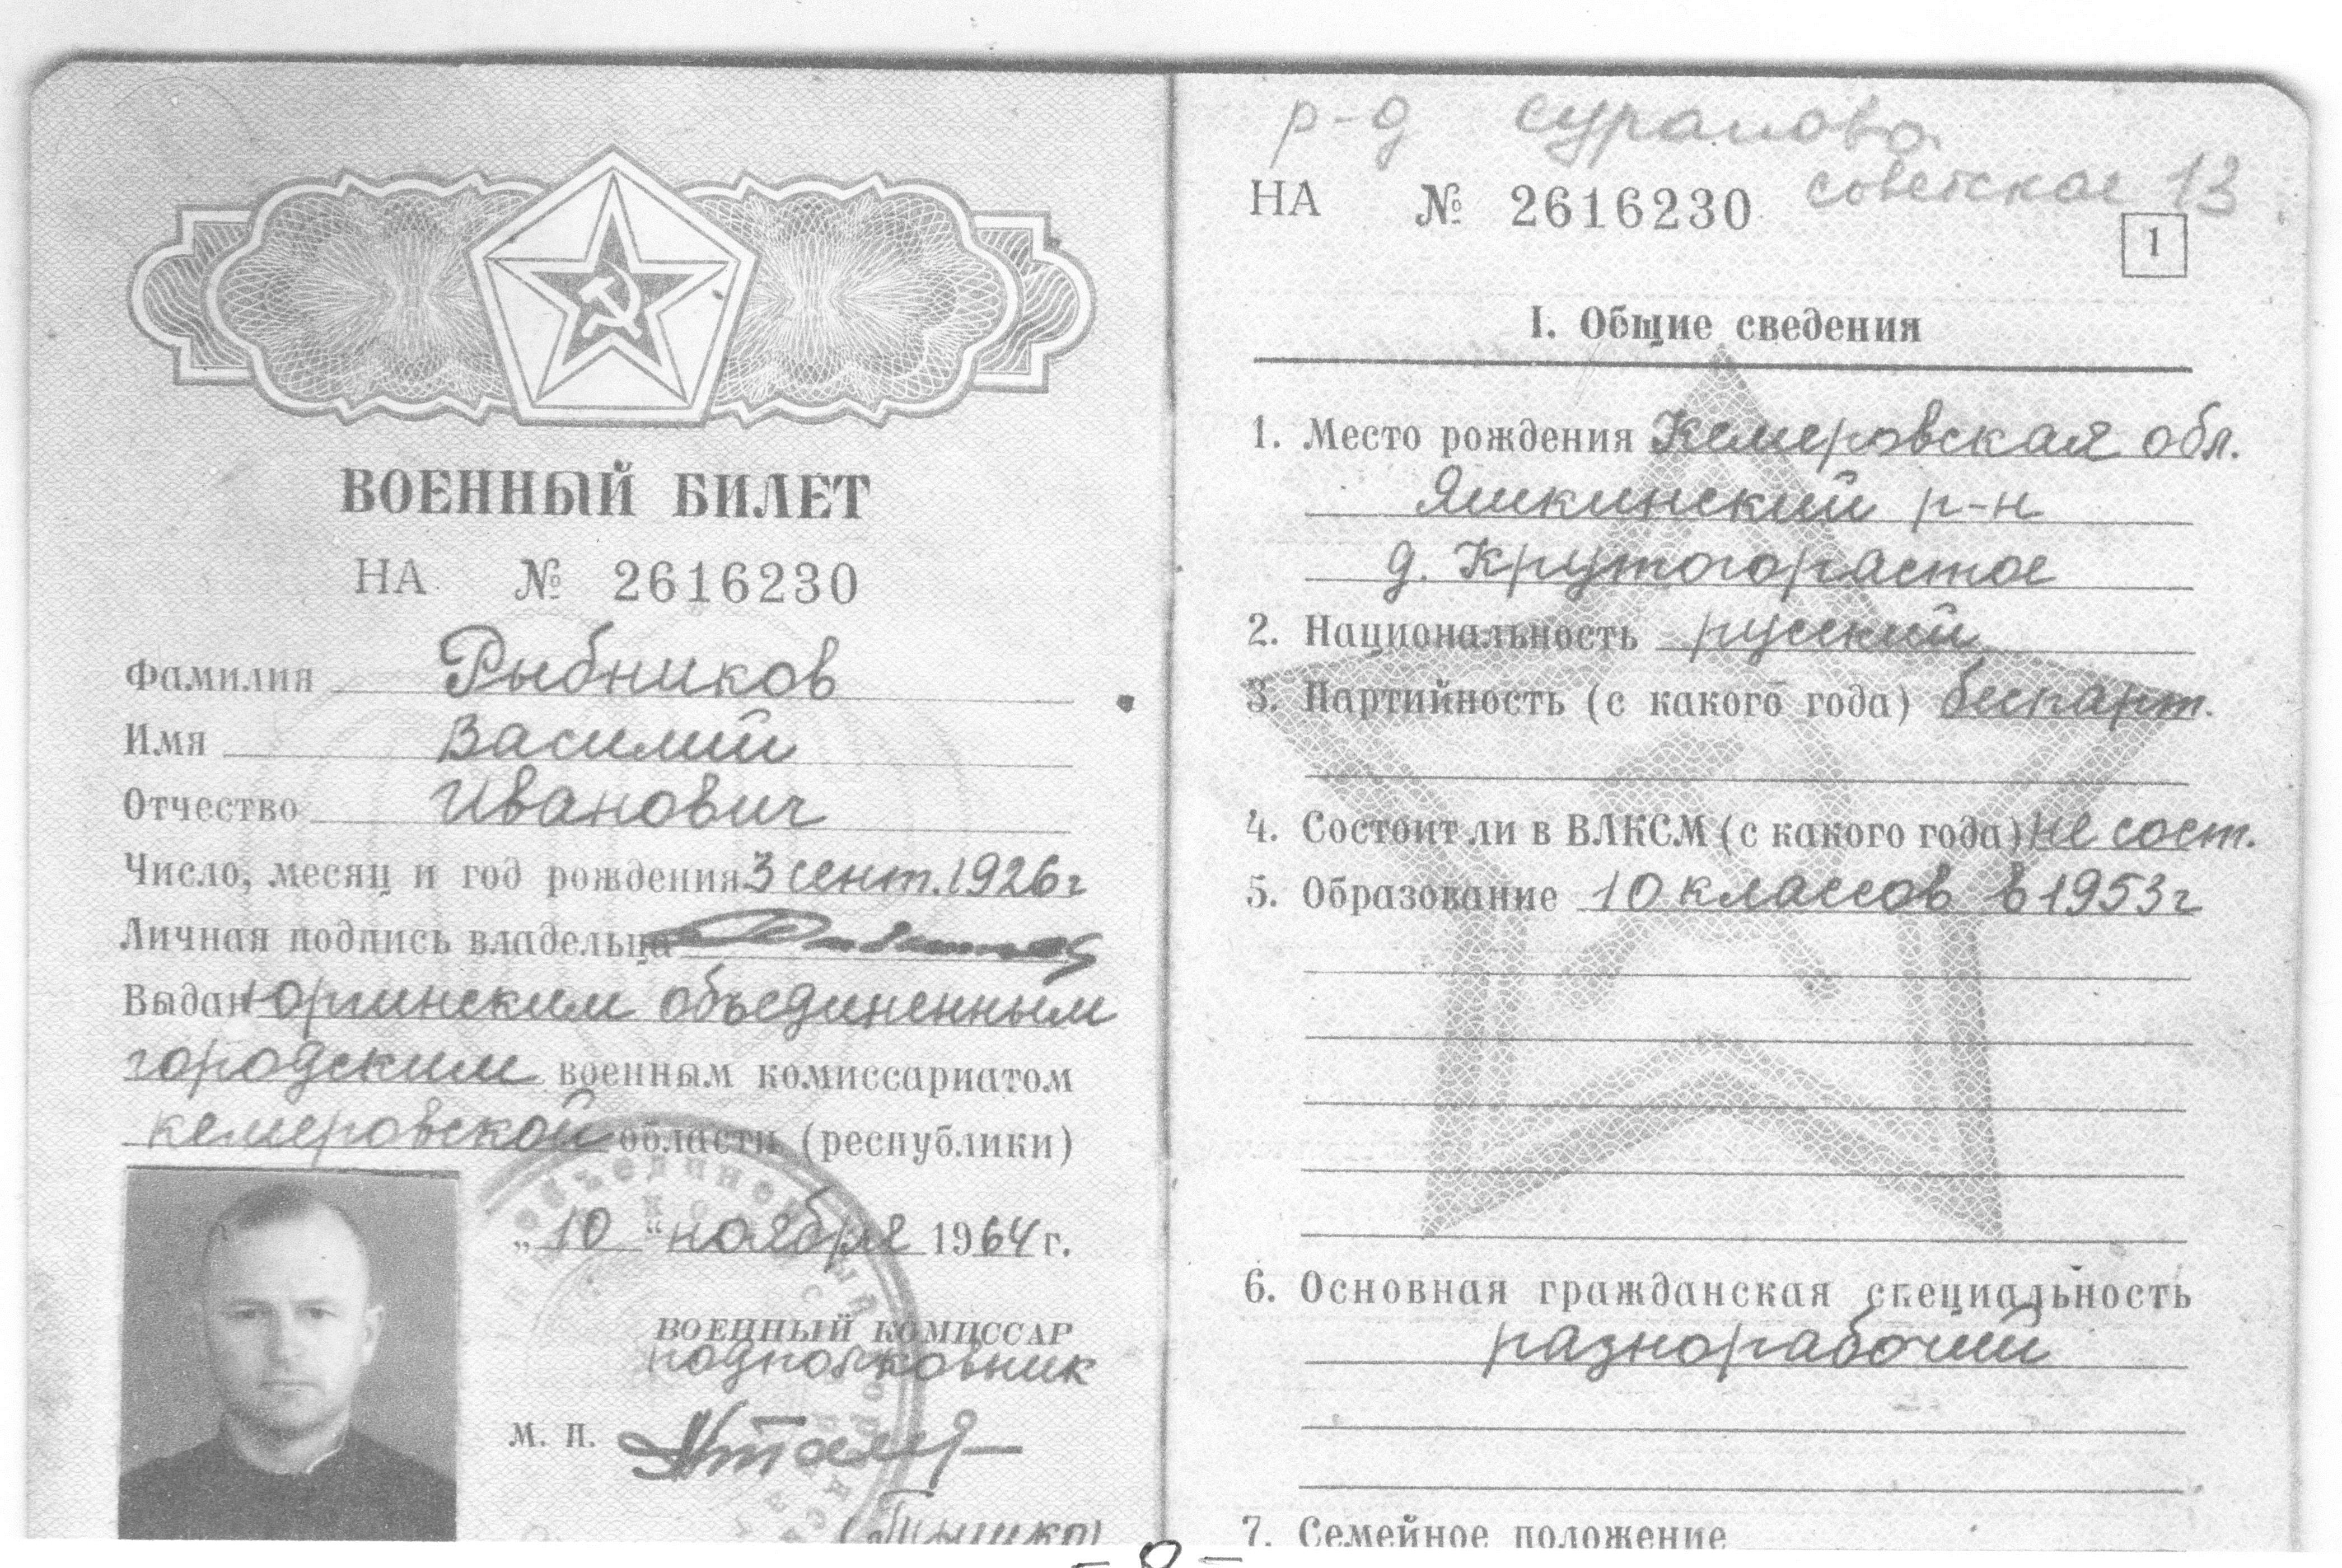 ВОЕННЫЙ БИЛЕТ
НА № 2616230
Фамилия Рыбников
Имя Василий
Отчество Иванович
Число, месяц и год рождения 3 сент. 1926 г
Личная подпись владельца
Выдан Юргинским объединенным
городским военным комиссариатом
кемеровской области (республики)
„10“ ноября 1964 г.
ВОЕННЫЙ КОМИССАР
подполковник
М. П.
р-д
советская 13
НА № 2616230
1
I. Общие сведения
1. Место рождения Кемеровская обл.
Яшкинский р-н
д. Крутогорастое
2. Национальность русский
3. Партийность (с какого года) беспарт.
4. Состоит ли в ВЛКСМ (с какого года) не сост.
5. Образование 10 классов в 1953 г
6. Основная гражданская специальность
разнорабочий
7. Семейное положение